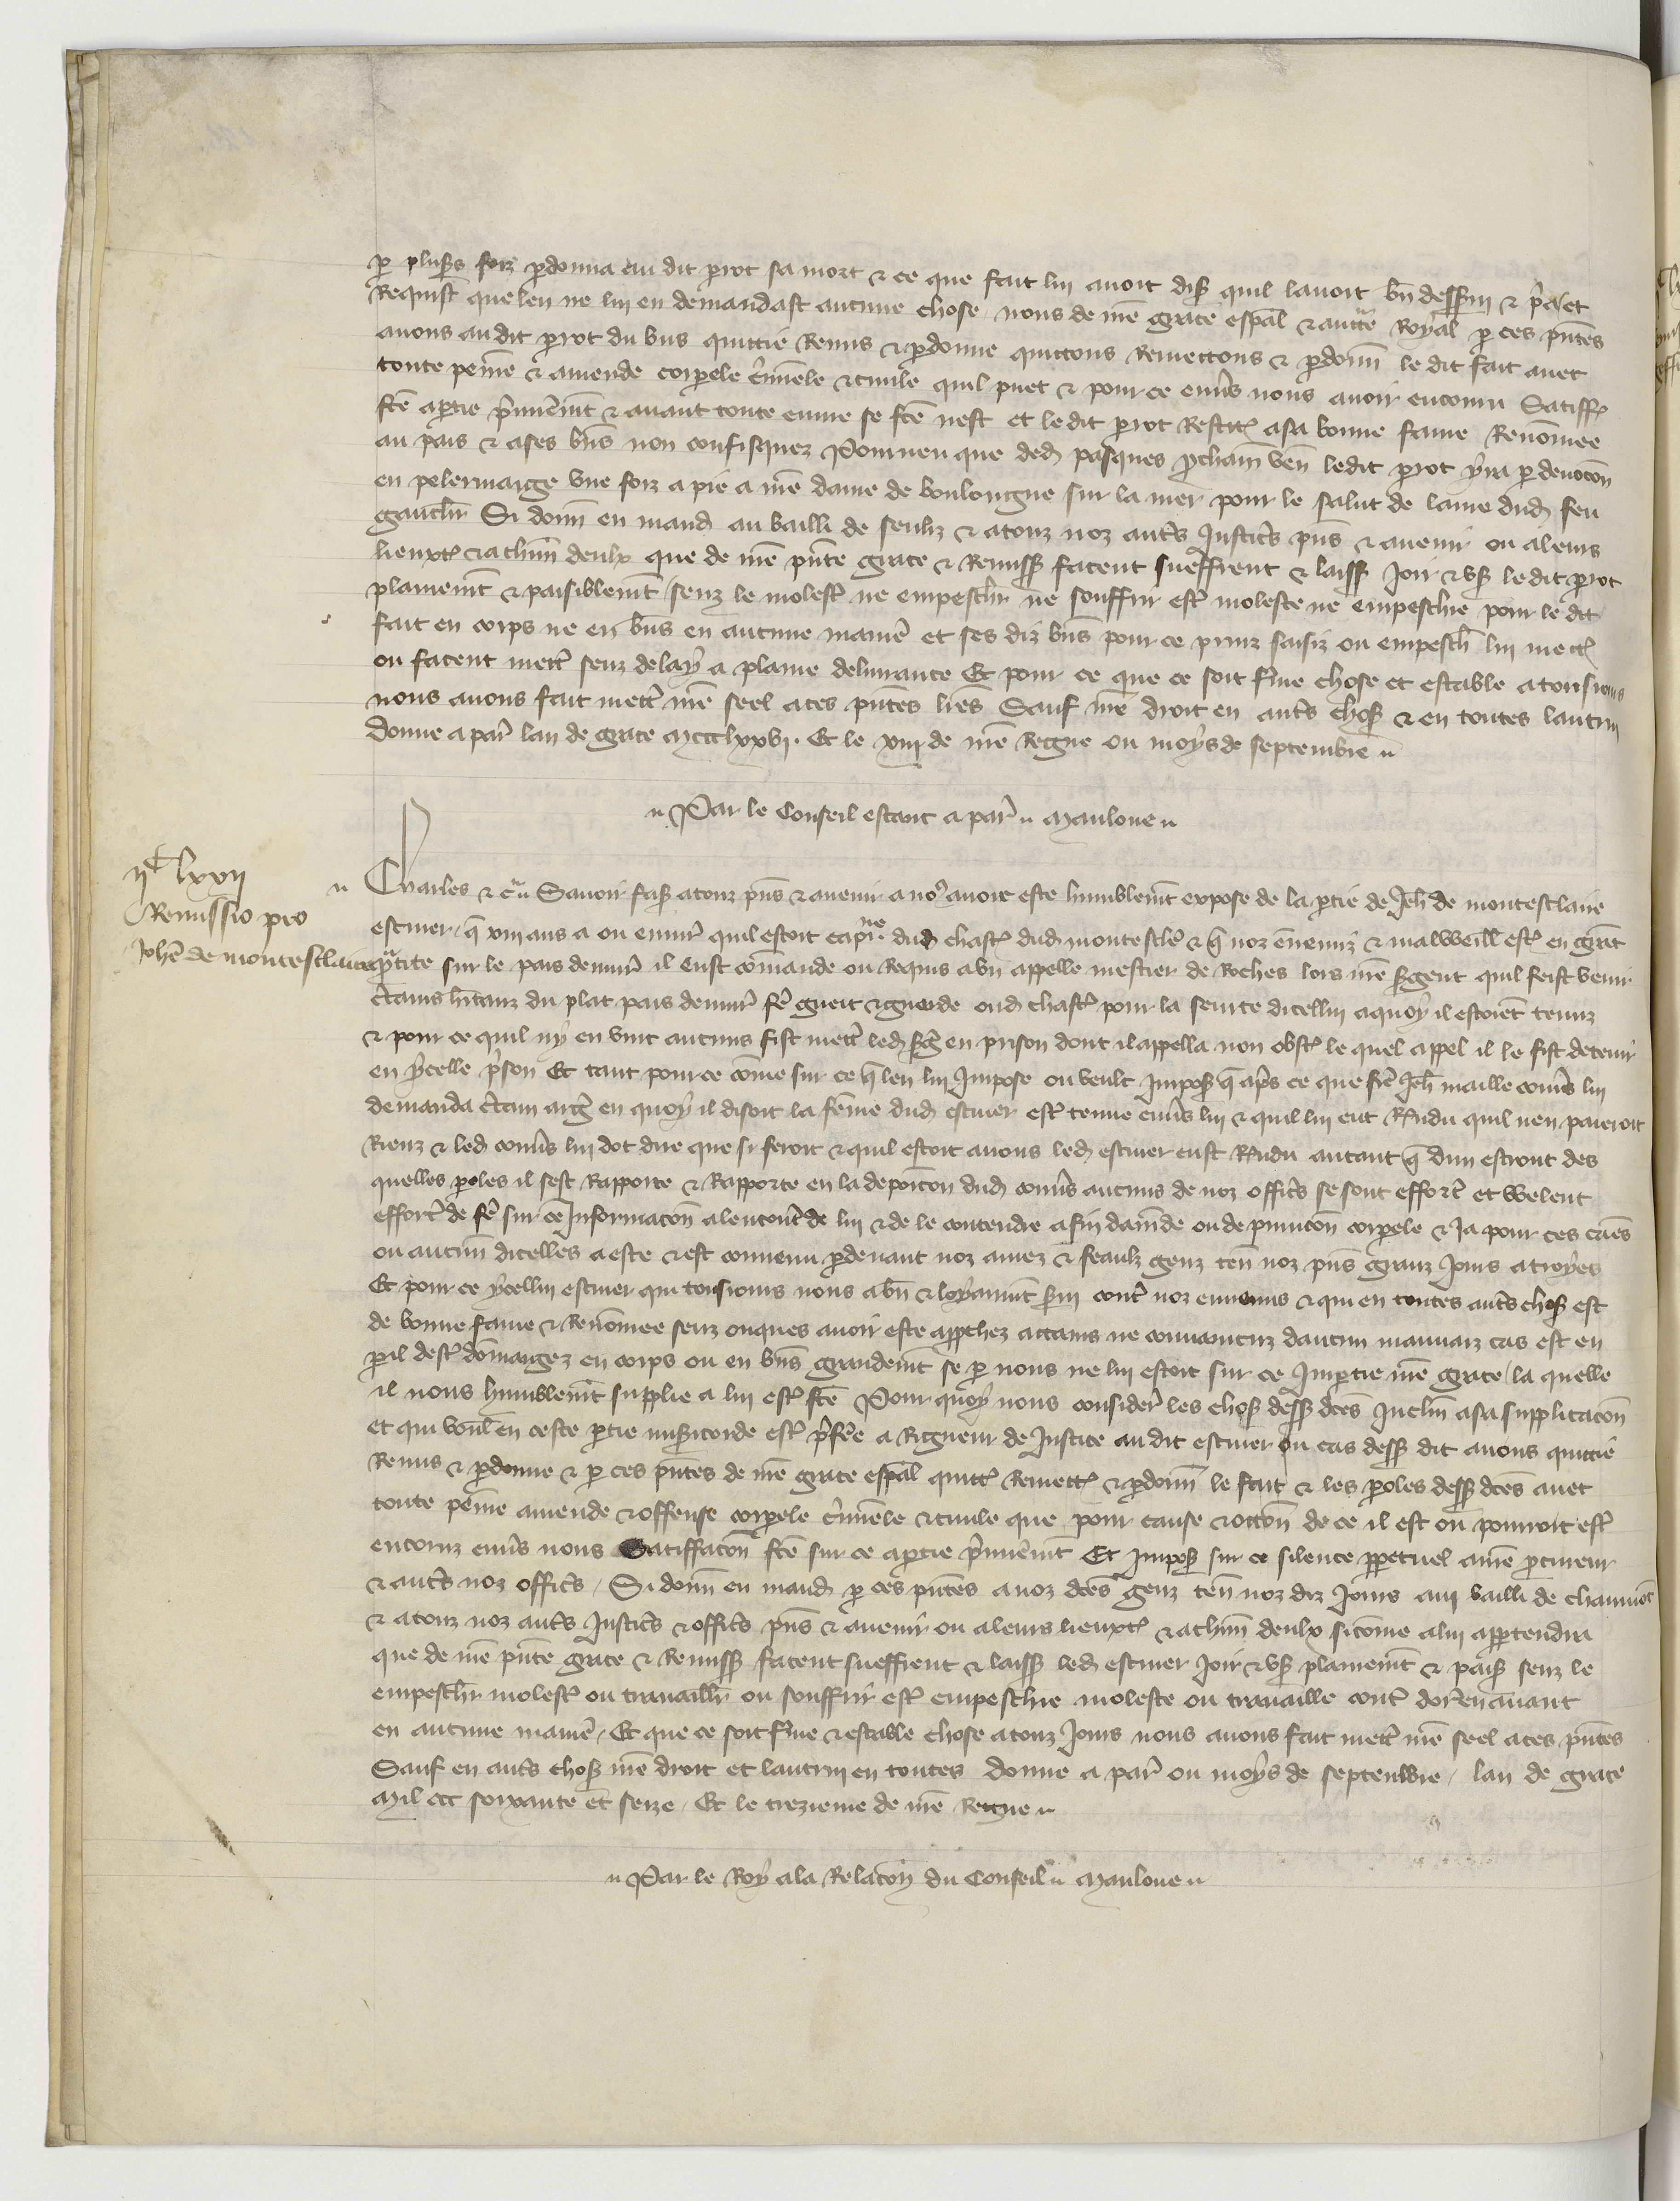 p plusrs foiz pdonna au dit perot sa mort & ce que fait lui avoit dis quil lavoit bn desservi & pria et
Requist que len ne lui en demandast aucune chose nous de nre grace espal & auctte Royal p ces pntes
avons au dit perot du bus quictie Remis & pdonne quictons Remectons & pdonn le dit fait avec
toute peinne & amende corpele criminele & civile quil puet & pour ce envs nous avoir encouru Satiff
fce a ptie primieremt & avant toute euvre se fce nest et le dit perot Restit a sa bonne fame Renommee
au pais & a ses bns non confisquez Pourveu que ded pasques pchain ven ledit perot yra p devocon
en pelerinaige une foiz a pie a nre dame de bouloingne sur la mer pour le salut de lame dud feu
gauchr Si donn en mand au bailli de senliz & a touz noz auts Justices pns & avenir ou a leurs
lieuxt & a chun deulx que de nre pnte grace & Remiss facent sueffrent & laiss Joir & us ledit perot
plainemt & paisiblemt senz le molest ne empeschr ne souffrir est moleste ne empeschie pour le dit
fait en corps ne en bns en aucune manie et ses diz bns pour ce prins saisiz ou empesch lui mect
ou facent mect senz delay a plaine delivrance Et pour ce que ce soit ferme chose et estable a tousjours
nous avons fait mectr nre seel a ces pntes lres Sauf nre droit en auts chos & en toutes lautrui
donne a par lan de grace mccclxxvi. Et le xiii de nre Regne ou moys de septembre
Par le Conseil estant a par Maulove
iic lxxii
Remissio pro
Johe de montesclaire
Charles & c Savoir fais a touz pns & avenir a nos avoir este humblemt expose de la ptie de Jeh de montesclaire
escuier q xiii ans a ou envir quil estoit capne dud chast dud montescler & q noz ennemiz & malweill est en grat
quatite sur le pais denvir il eust comande ou Requis a un appelle mestier de Roches lors nre sgent quil feist venir
ctains hitanz du plat pais denvir fe gueit & guarde oud chast pour la seurte dicellui a quoy il estoiet tenuz
& pour ce quil ny en vint aucuns fist mect led sg en prison dont il appella non obst le quel appel il le fist detenir
en ycelle prison Et tant pour ce come sur ce q len lui Impose ou veult Impos q aps ce que fre Jeh maille convs lui
demanda ctain arg en quoy il disoit la feme dud escuier est tenue envs lui & quil lui eut Rndu quil nen paieroit
Rienz & led convs lui dot dire que si feroit & quil estoit avons led escuier eust Rndu autant q dun estront des
quelles poles il sest Rapporte & Rapporte en la deposicon dud convs aucuns de noz offics se sont effort et welent
effort de fe sur ce Informacon a lencont de lui & de le contendre a fin damde ou de punicon corpele & Ja pour ces caus
ou aucun dicelles a este & est convenu pdevant noz amez & feaulz genz ten noz pns granz Jours a troyes
Et pour ce ycellui escuier qui tousjours nous a bn & loyaumt svi cont noz ennemis & qui en toutes auts chos est
de bonne fame & Renommee senz onques avoir este approchez attains ne convaincuz daucun mauvaiz cas est en
pil dest domaigez en corps ou en bns grandemt se p nous ne lui estoit sur ce Impartie nre grace la quelle
il nous humblemt supplie a lui est fce Pour quoy nous consider les chos dess dces Inclin a sa supplicacon
et qui voul en ceste ptie misicorde est pferee a Rigueur de Justice au dit escuier ou cas dess dit avons quictie
Remis & pdonne & p ces pntes de nre grace espal quict Remect & pdonn le fait & les poles dess dces avec
toute peinne amende & offense corpele criminele & civile que pour cause & occon de ce il est ou pourroit est
encoruz envs nous Satiffacon fce sur ce a ptie primieremt Et Impos sur ce silence ppetuel a nre pcureur
& auts noz offics Si donn en mand p ces pntes a noz dces genz ten noz diz Jours au bailli de chaumot
& a touz noz auts Justics & offics pns & avenir ou a leurs lieuxt & a chun deulx sicome a lui appertendra
que de nre pnte grace & Remiss facent sueffrent & laiss led escuier Joir & us plainemt & pais senz le
empeschr molest ou travaillr ou souffrir est empeschie moleste ou travaille cont dorenavant
en aucune manie Et que ce soit ferme & estable chose a touz Jours nous avons fait mect nre seel a ces pntes
Sauf en auts chos nre droit et lautrui en toutes donne a par ou moys de septembre lan de grace
Mil ccc soixante et seize Et le trezieme de nre Regne
Par le Roy a la Relacon du Conseil Maulove